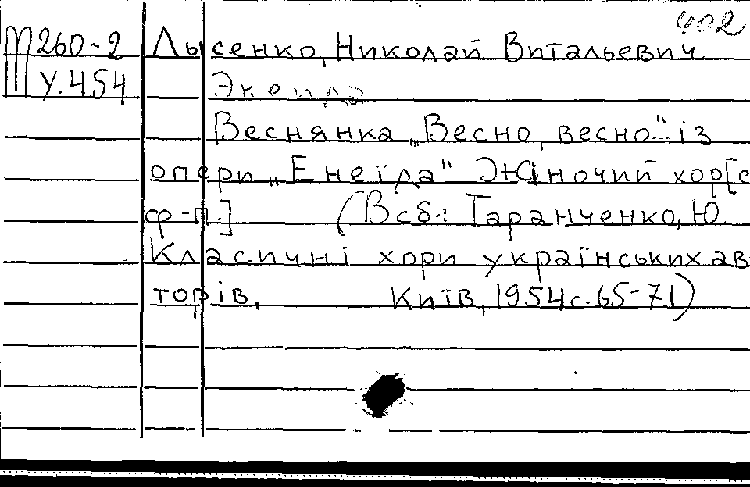 402
Ш260-2 Лысенко, Николай Витальевич
У.454 Энеида
Веснянка „Весно, весно" із
опери „Енеїда" Жіночий хор[с
ф-п.] (В сб.: Таранченко, Ю.
Класичні хори українських ав-
торів. Київ, 1954 с. 65-71)